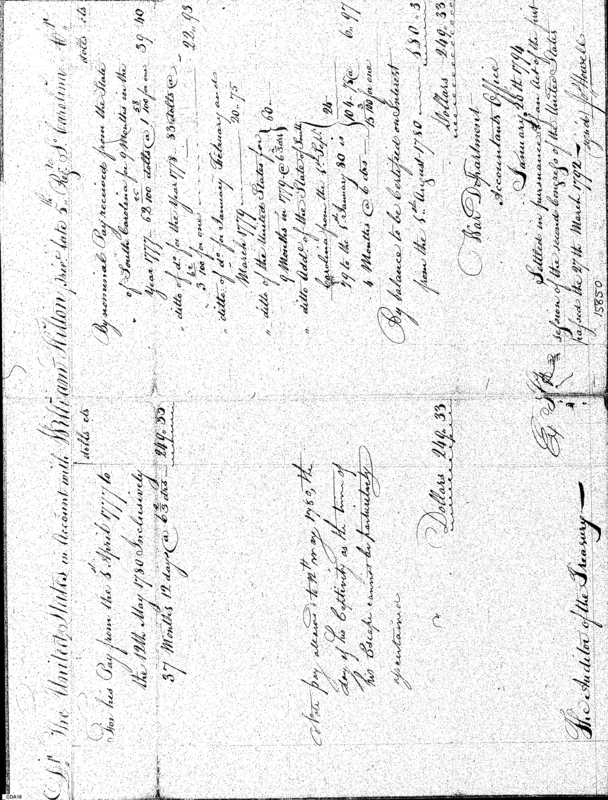 Dr The United States in Account with William Hilton, late 5th Regt So Carolina Cr
dolls cts
For his Pay from the 5 April 1777 to
the 12th May 1780 Inclusively
37 Months 12 days @ 6 2/3 dolls 249.33
Note pay allowed to 12th May 1780, the
day of his Captivity as the time of
his Escape cannot be particularly
ascertained
Dollars 249.33
The Auditor of the Treasury
dolls cts
By nominal Pay received from the State
of South Carolina for 9 Months in the
Year 1777 62 100 dolls @ 1 58/100 for one 39 40
" ditto of do for the Year 1778 83 dolls @
3 62/100 for one 22.93
" ditto of do for January February and
March 1779 20.75
" ditto of the United States for
9 Months in 1779 @ 6 2/3 dolls 60
" ditto Addl of the State of South
Carolina from the 5th Septr
79 to the 5th January 80 is
4 Months @ 6 dolls 24
104.75 @
15 for one 6.97
By balance to be Certified on Interest
from the 5th August 1780 180.3
Dollars 249.33
War Department
Accountants Office
January 28th 1794
Settled in pursuance of an Act of the first
session of the second Congress of the United States
passed the 27th March 1792
signed Jos Howell
15850
CDA16